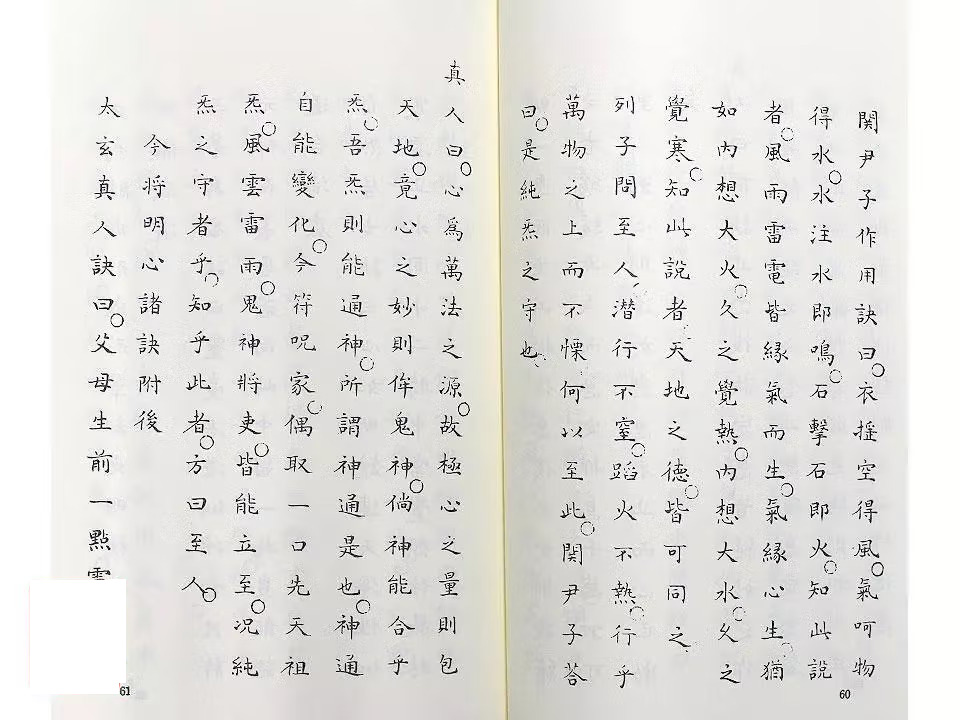 関尹子作用訣曰。衣揺空得風。氣呵物
得水。水注水即鳴。石擊石即火。知此說
者。風雨雷電皆緣氣而生。氣緣心生。猶
如內想大火。久之覺熱。內想大水。久之
覺寒。知此說者。天地之德。皆可同之
列子問至人潜行不窒。蹈火不熱。行乎
萬物之上而不慄。何以至此。関尹子荅
曰。是純炁之守也。
60
真人曰。心爲萬法之源。故極心之量則包
天地。竟心之妙則侔鬼神。倘神能合乎
炁。吾炁則能通神。所謂神通是也。神通
自能變化。今符呪家。偶取一口先天祖
炁。風雲雷雨。鬼神將吏。皆能立至。况純
炁之守者乎。知乎此者。方曰至人。
今將明心諸訣附後
太玄真人訣曰。父母生前一點
61